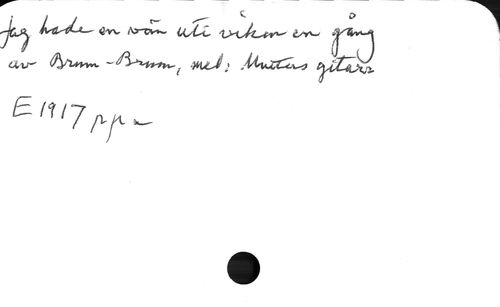 Jag hade en vän uti viken en gång
av Brum-Brum, mel: Mutters gitarr
E 1917